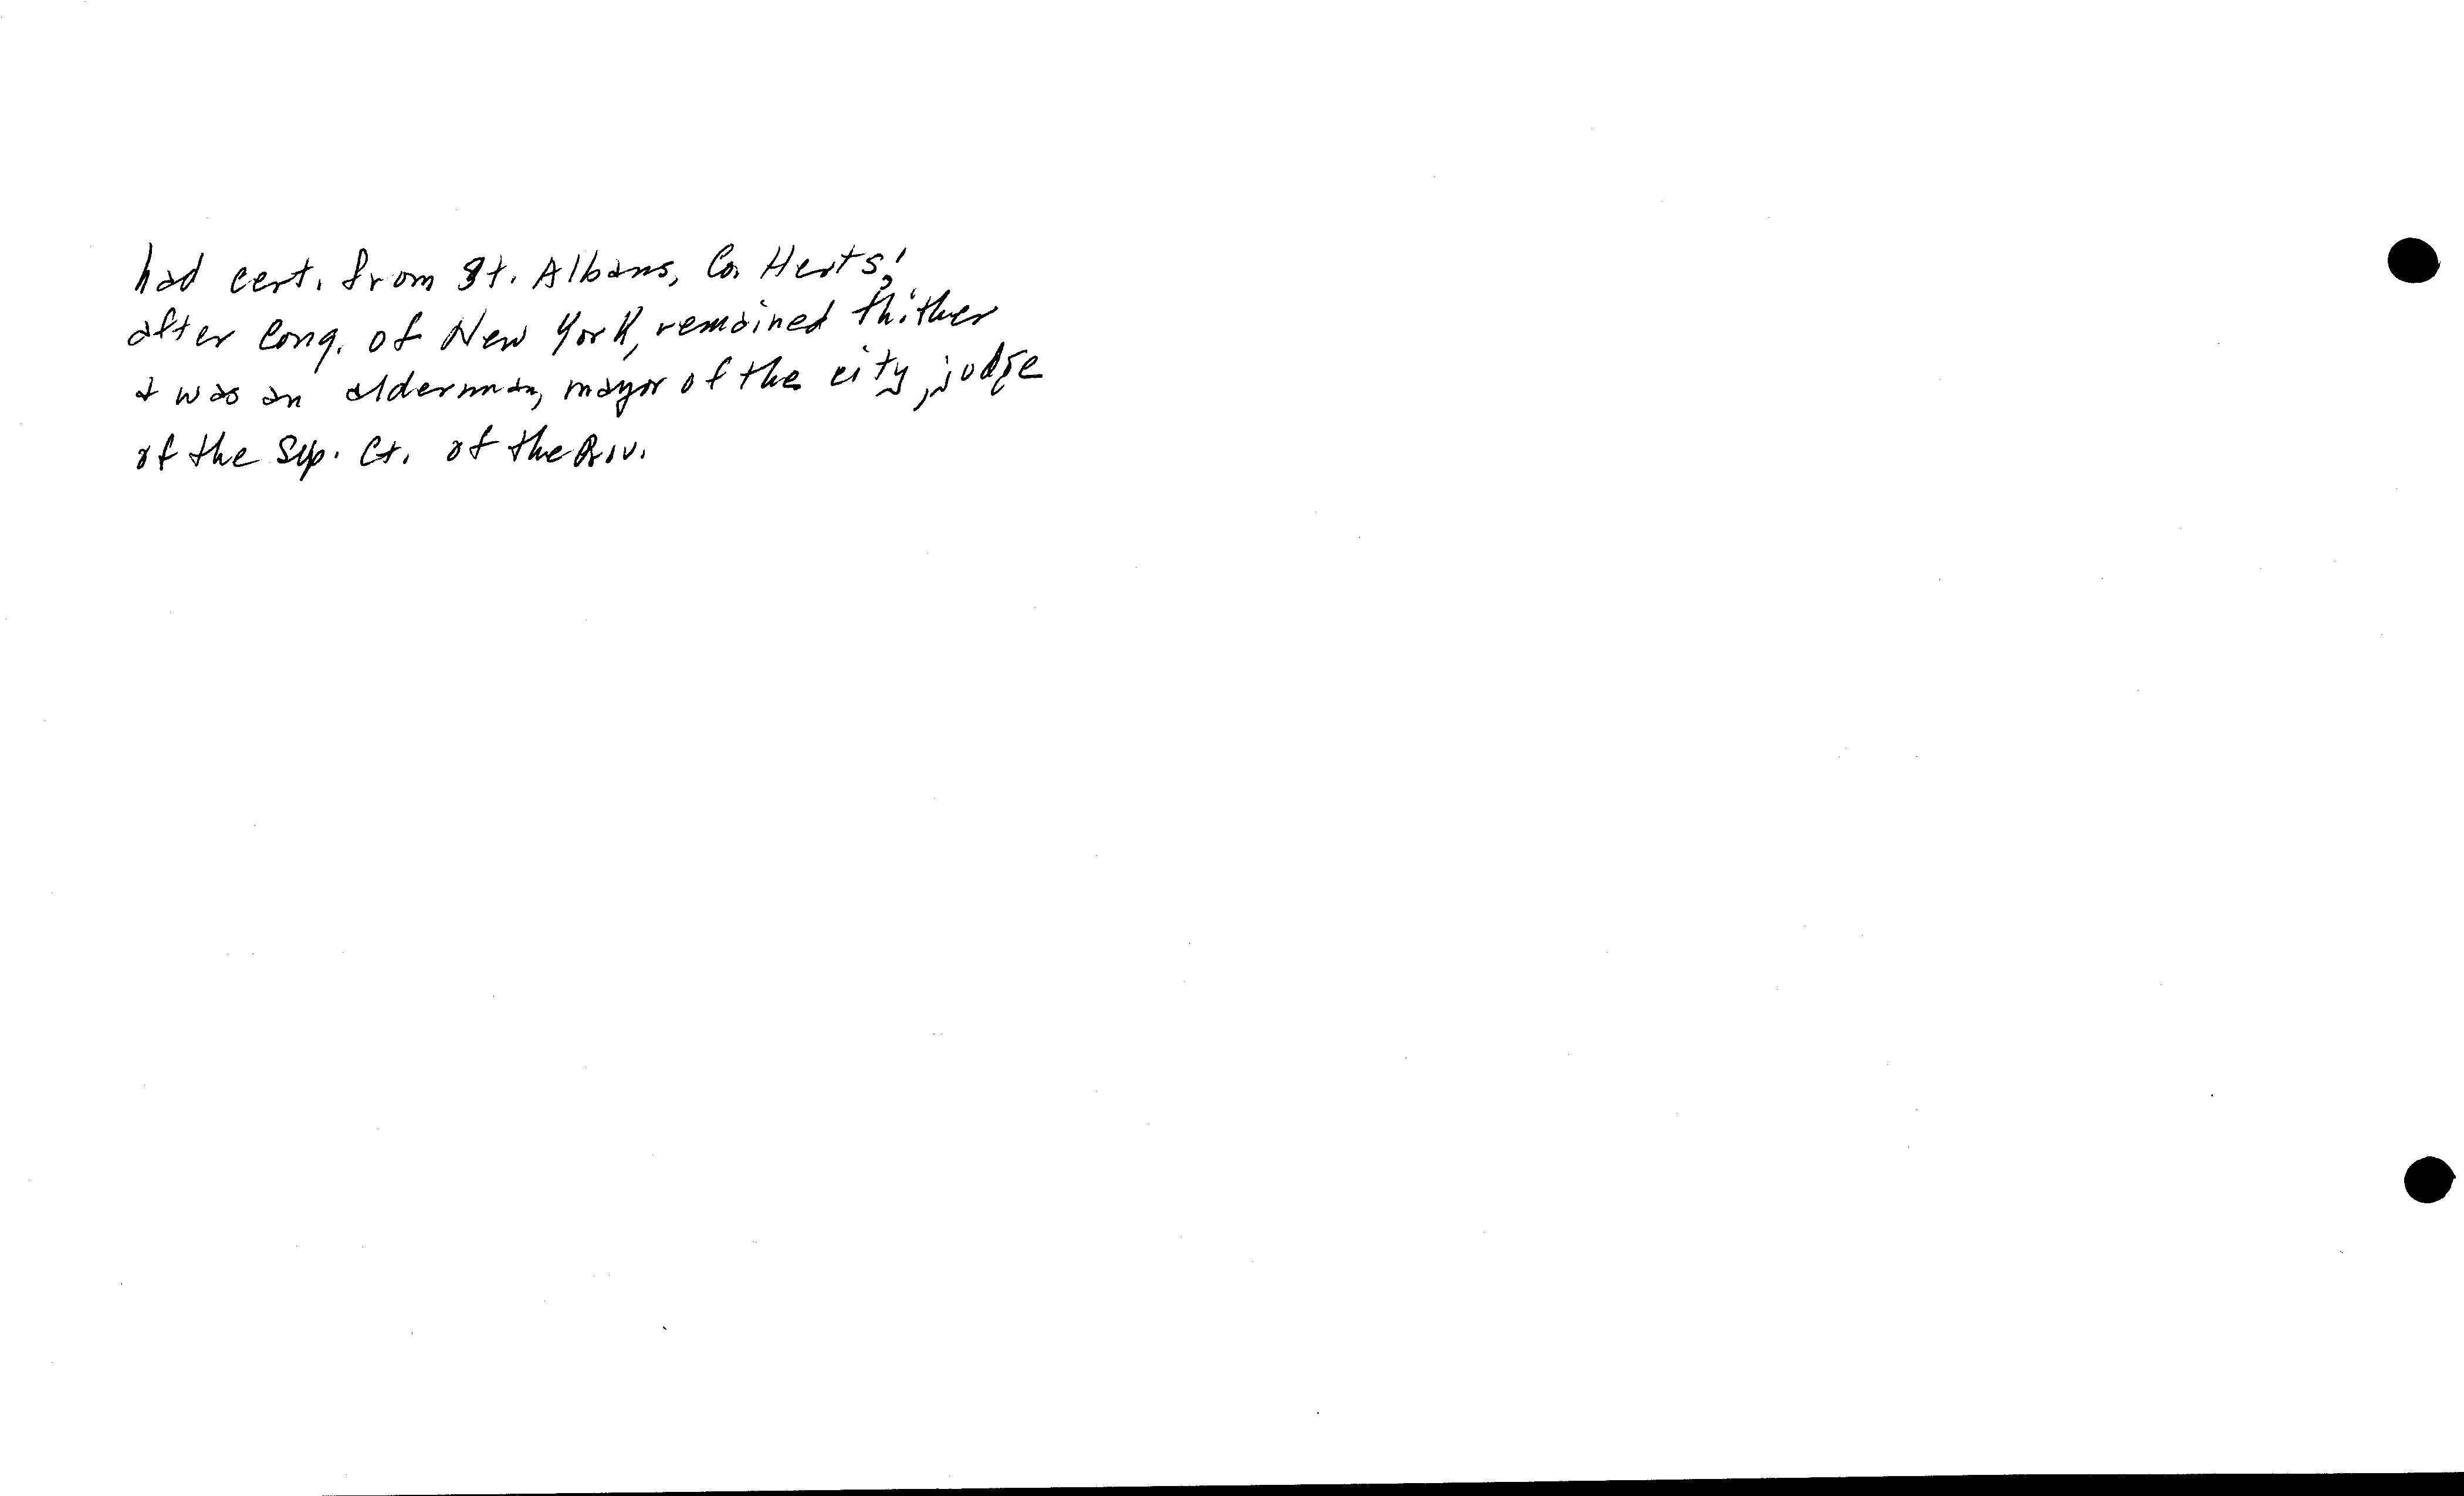 had cert. from St. Albans, Co. Herts;
after Conq. of New York, remained thither
& was an alderman, mayor of the city, judge
of the Sup. Ct. of the